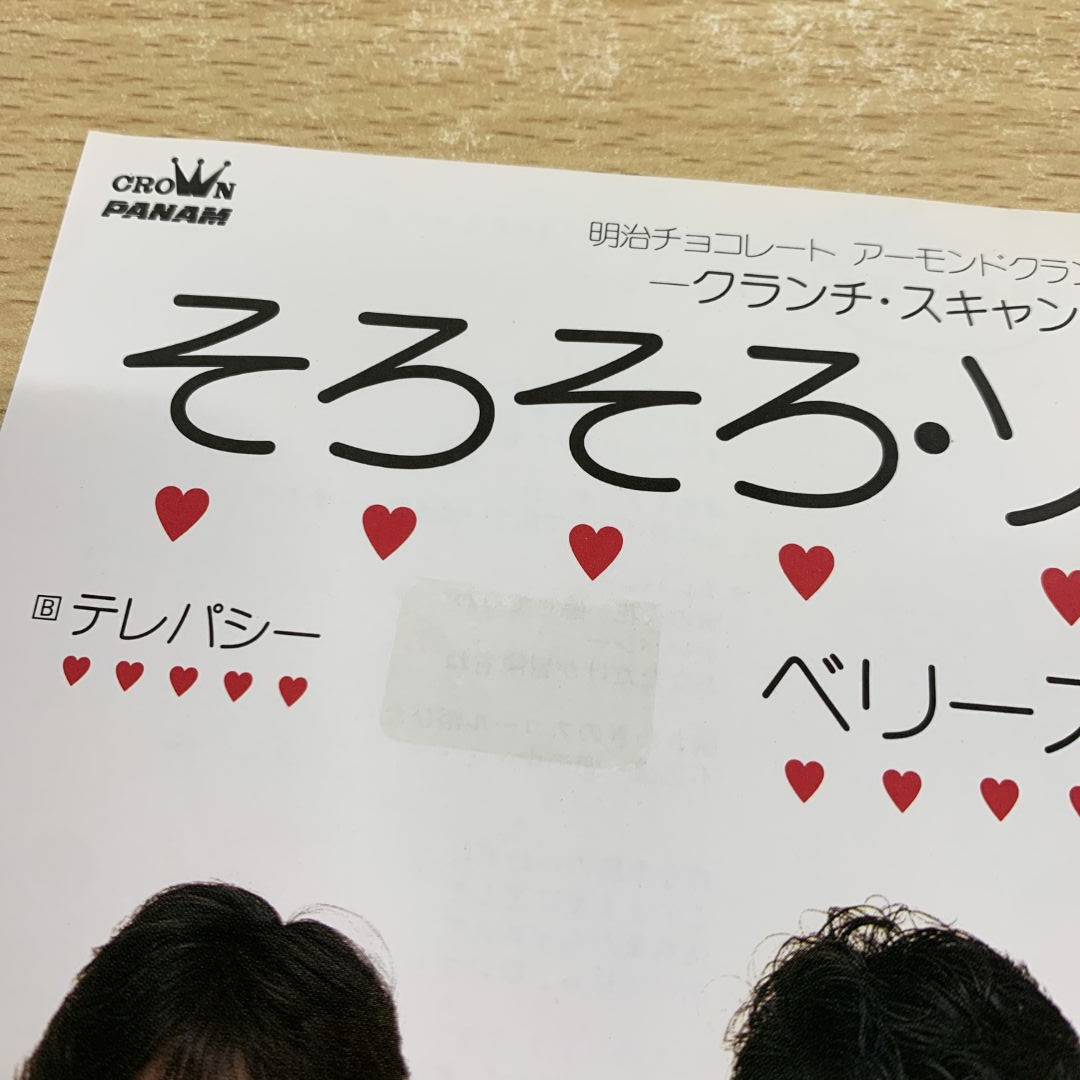 CROWN
PANAM
明治チョコレート アーモンドクラン
―クランチ・スキャン
そろそろ・
B テレパシー
ベリー